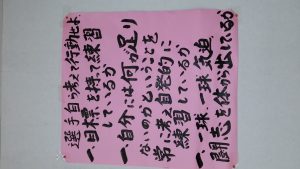 選手自ら考えて行動せよ
一、目標を持って練習
しているか
一、自分には何が足り
ないのかということを
常に考え自発的に
練習しているか
一、一球一球気迫、
闘志を体から出しているか